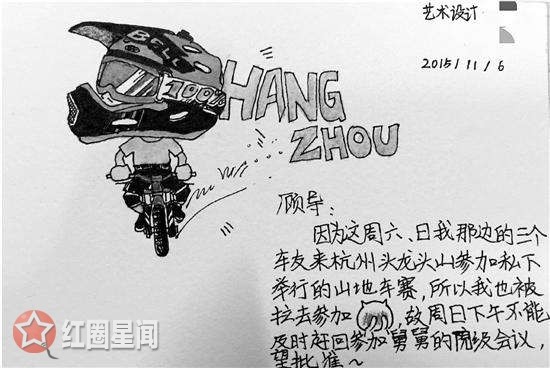 艺术设计
2015/11/6
BELL
100%
HANG
ZHOU
顾导:
因为这周六、日我那边的三个
车友来杭州头龙头山参加私下
举行的山地车赛,所以我也被
拉去参加,故周日下午不能
及时赶回参加舅舅的院级会议,
望批准~
红圈星闻